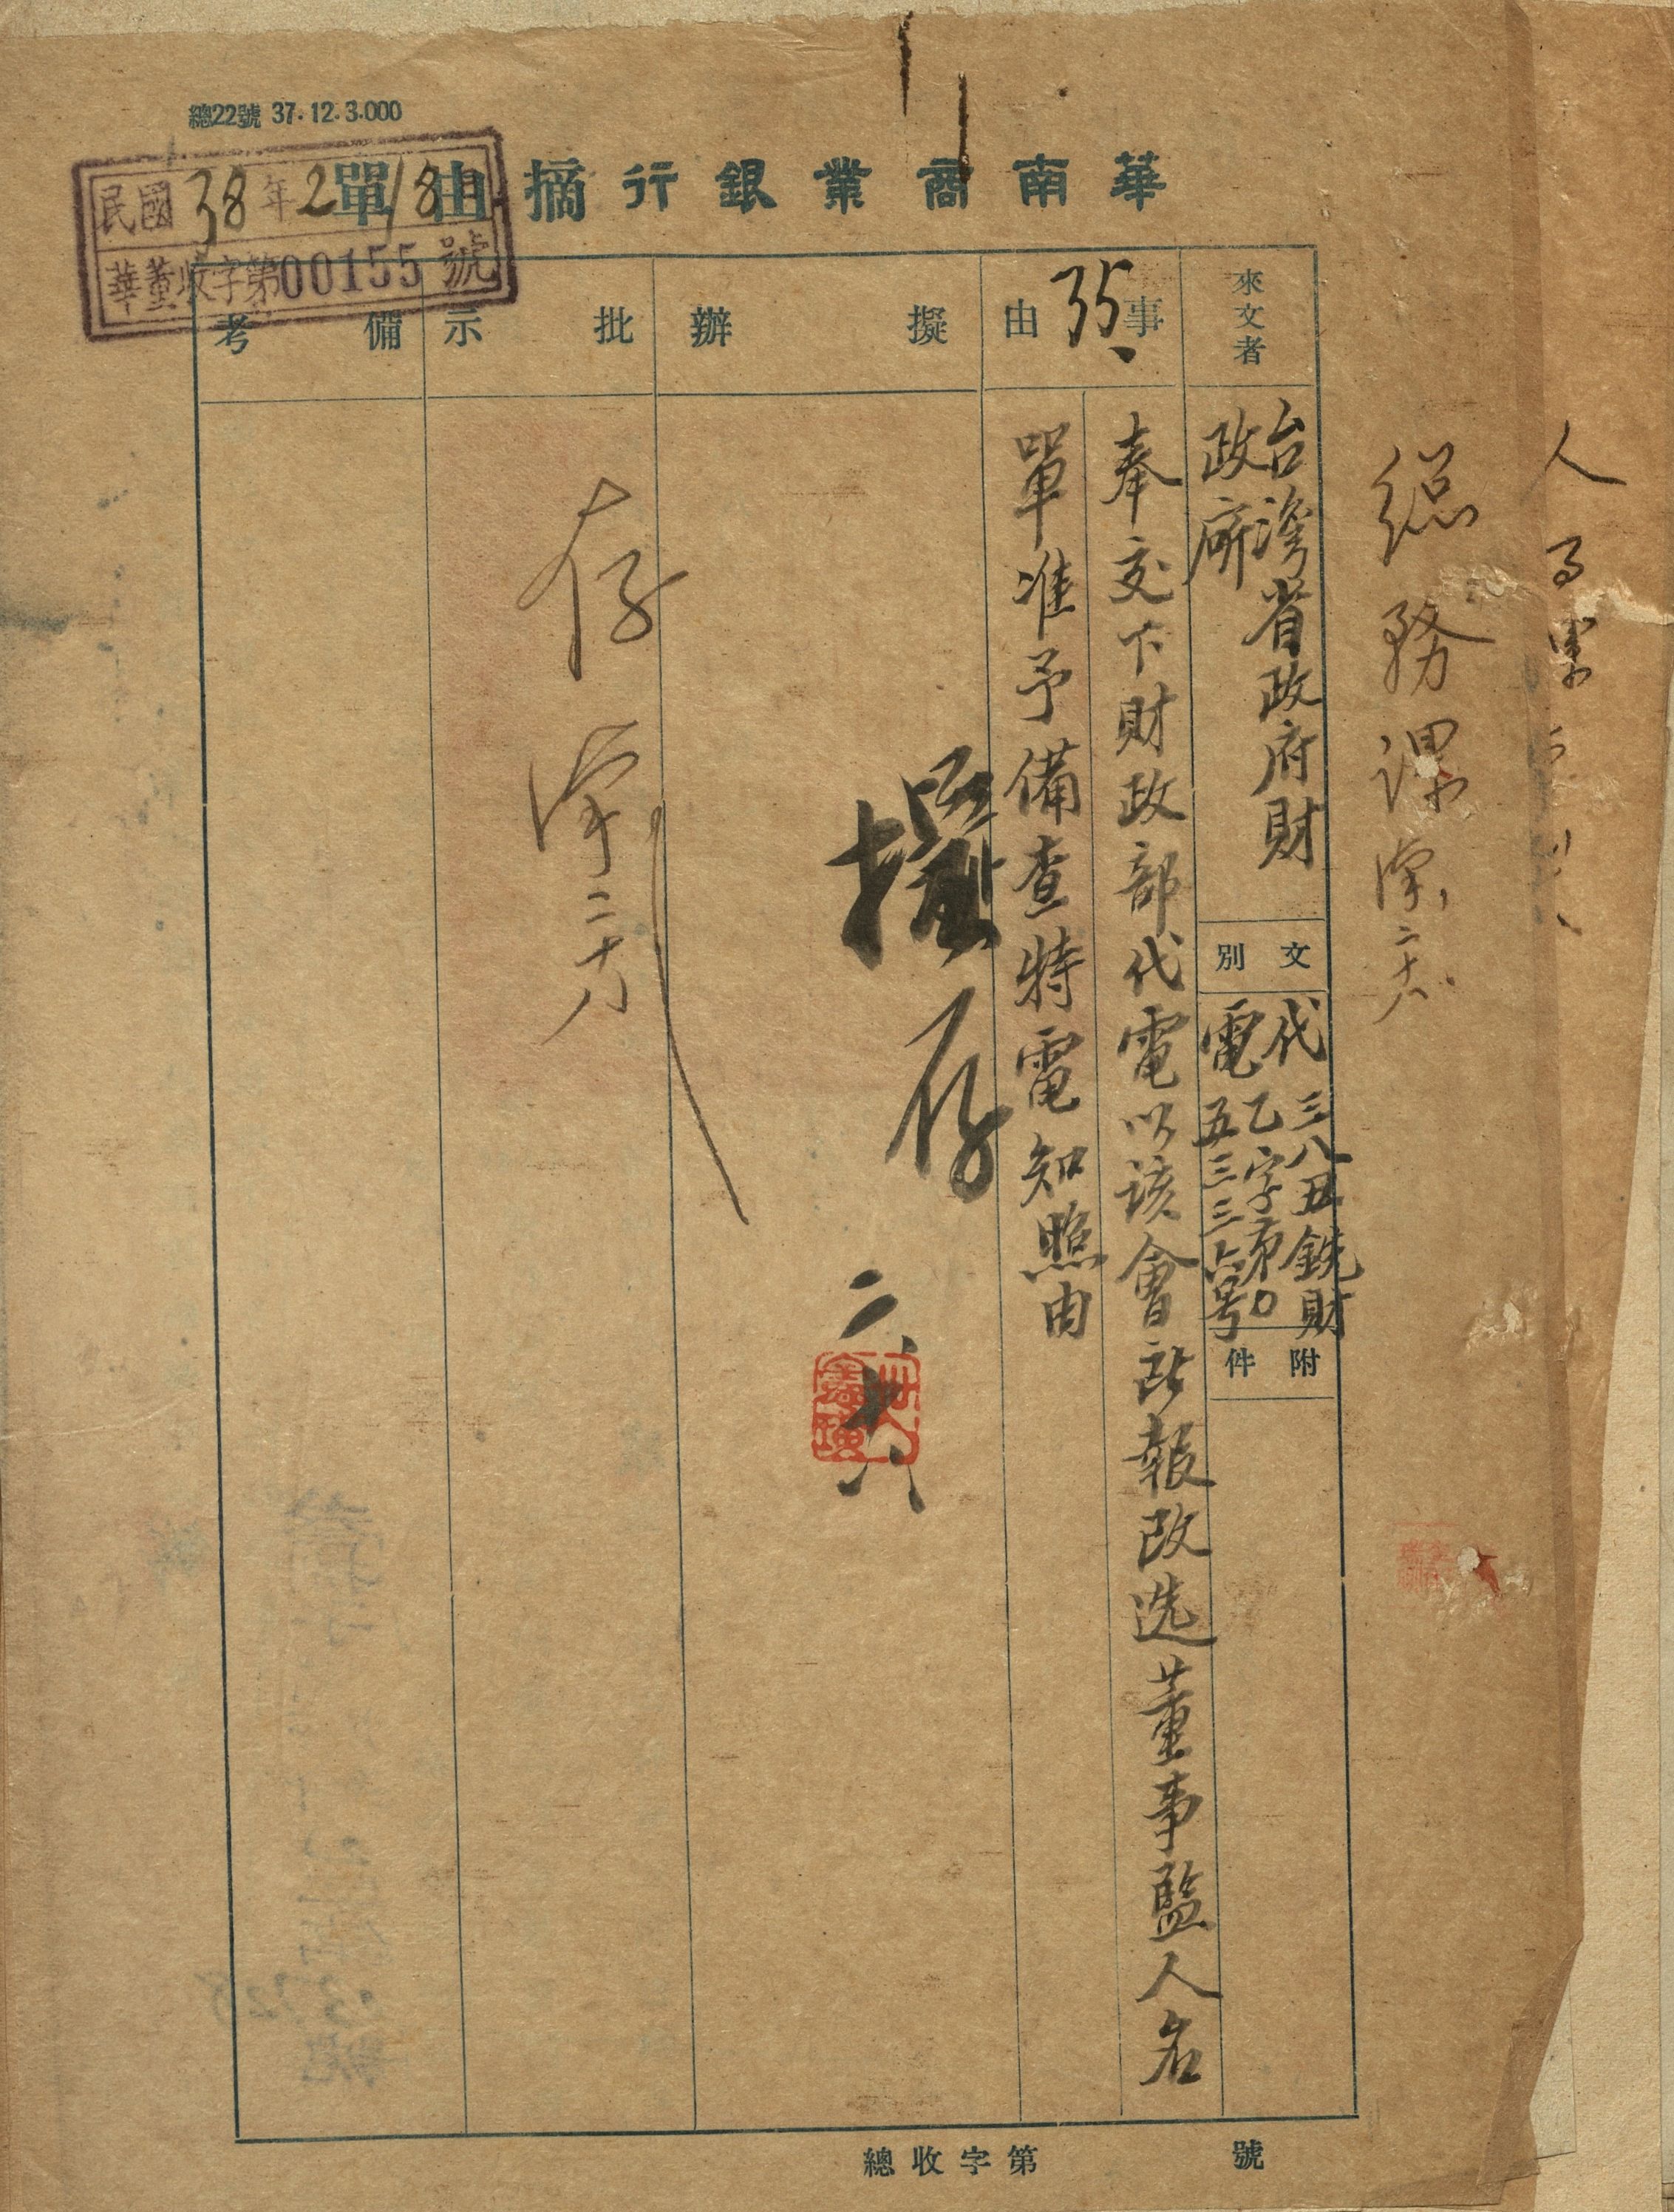 總22號 37.12.3.000
華南商業銀行摘由單
民國38年2 18日
華董收字第00155號
來文者
台灣省政府財
政府
文別
代
電
三八丑銑財
乙字第0
五三三六号
附件
事由
35、
奉交下財政部代電以該會所報改选董事監人名
單准予備查特電知照由
擬辦
擬存
二、十八
批示
存
二十八
備考
總務課
二十八
人事課
總收字第 號